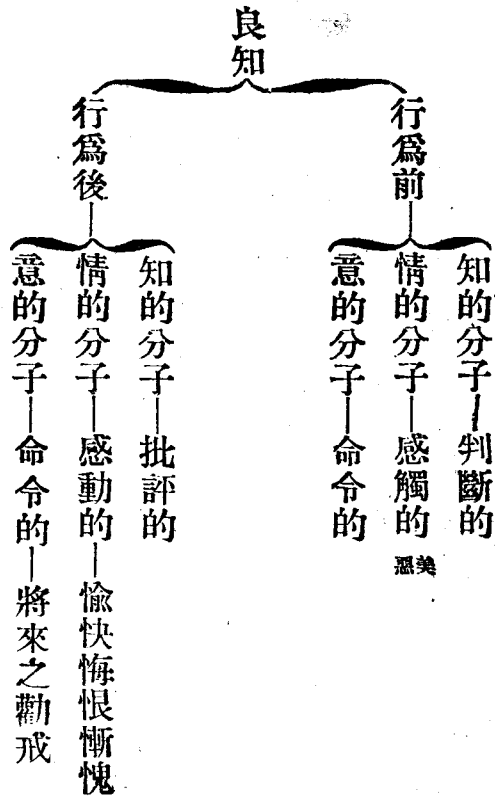 良知
行爲前
知的分子—判斷的
情的分子—感觸的
美惡
意的分子—命令的
行爲後
知的分子—批評的
情的分子—感動的—愉快悔恨慚愧
意的分子—命令的—將來之勸戒